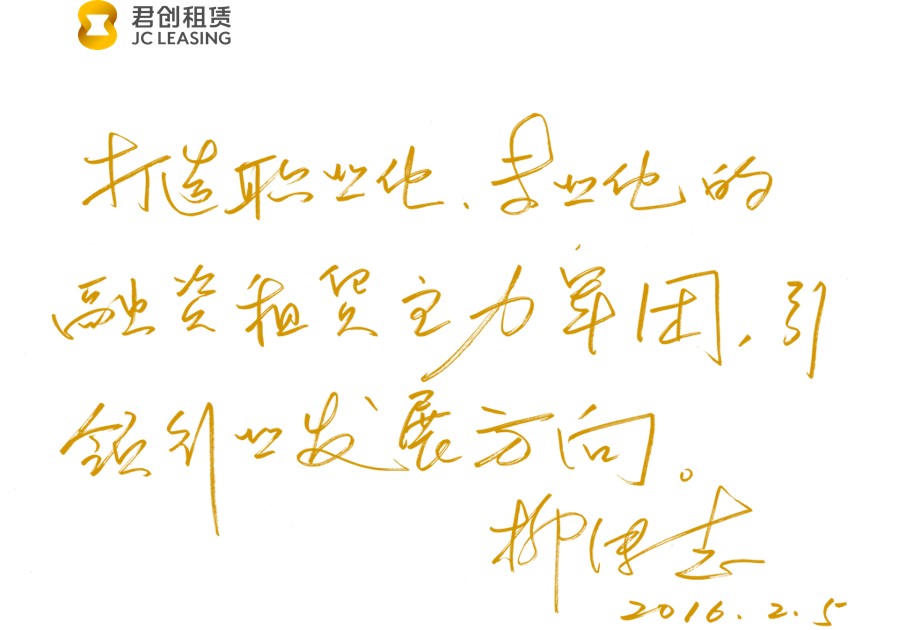 君创租赁
JC LEASING
打造职业化、专业化的
融资租赁主力军团,引
领行业发展方向。
柳传志
2016.2.5